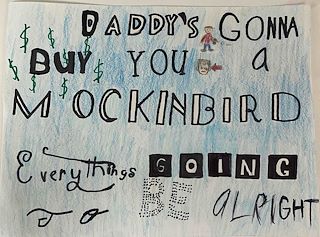 DADDY'S GONNA
BUY YOU A
MOCKINBIRD
Everythings GOING
TO BE ALRIGHT